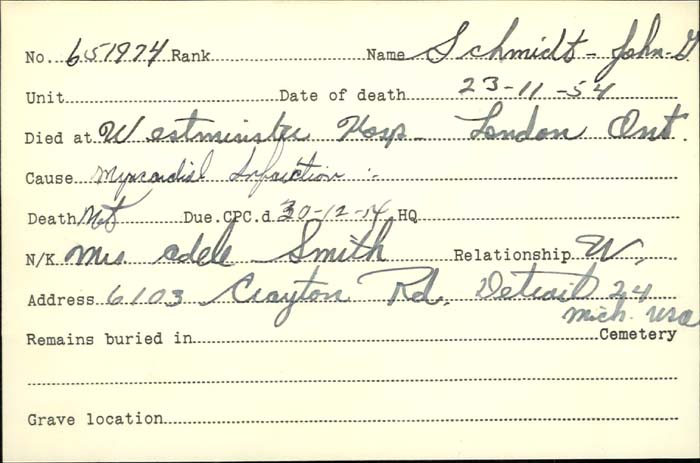 No. 651974 Rank Name Schmidt - John. G.
Unit Date of death 23-11-54
Died at Westminister Hosp - London Ont.
Cause Myocardial Infarction :-
Death Not Due.CPC.d. 30-12-14 HQ
N/K Mrs Adele Smith Relationship W,
Address 6103 Crayton Rd, Detroit 24
Mich. USA
Remains buried in Cemetery
Grave location